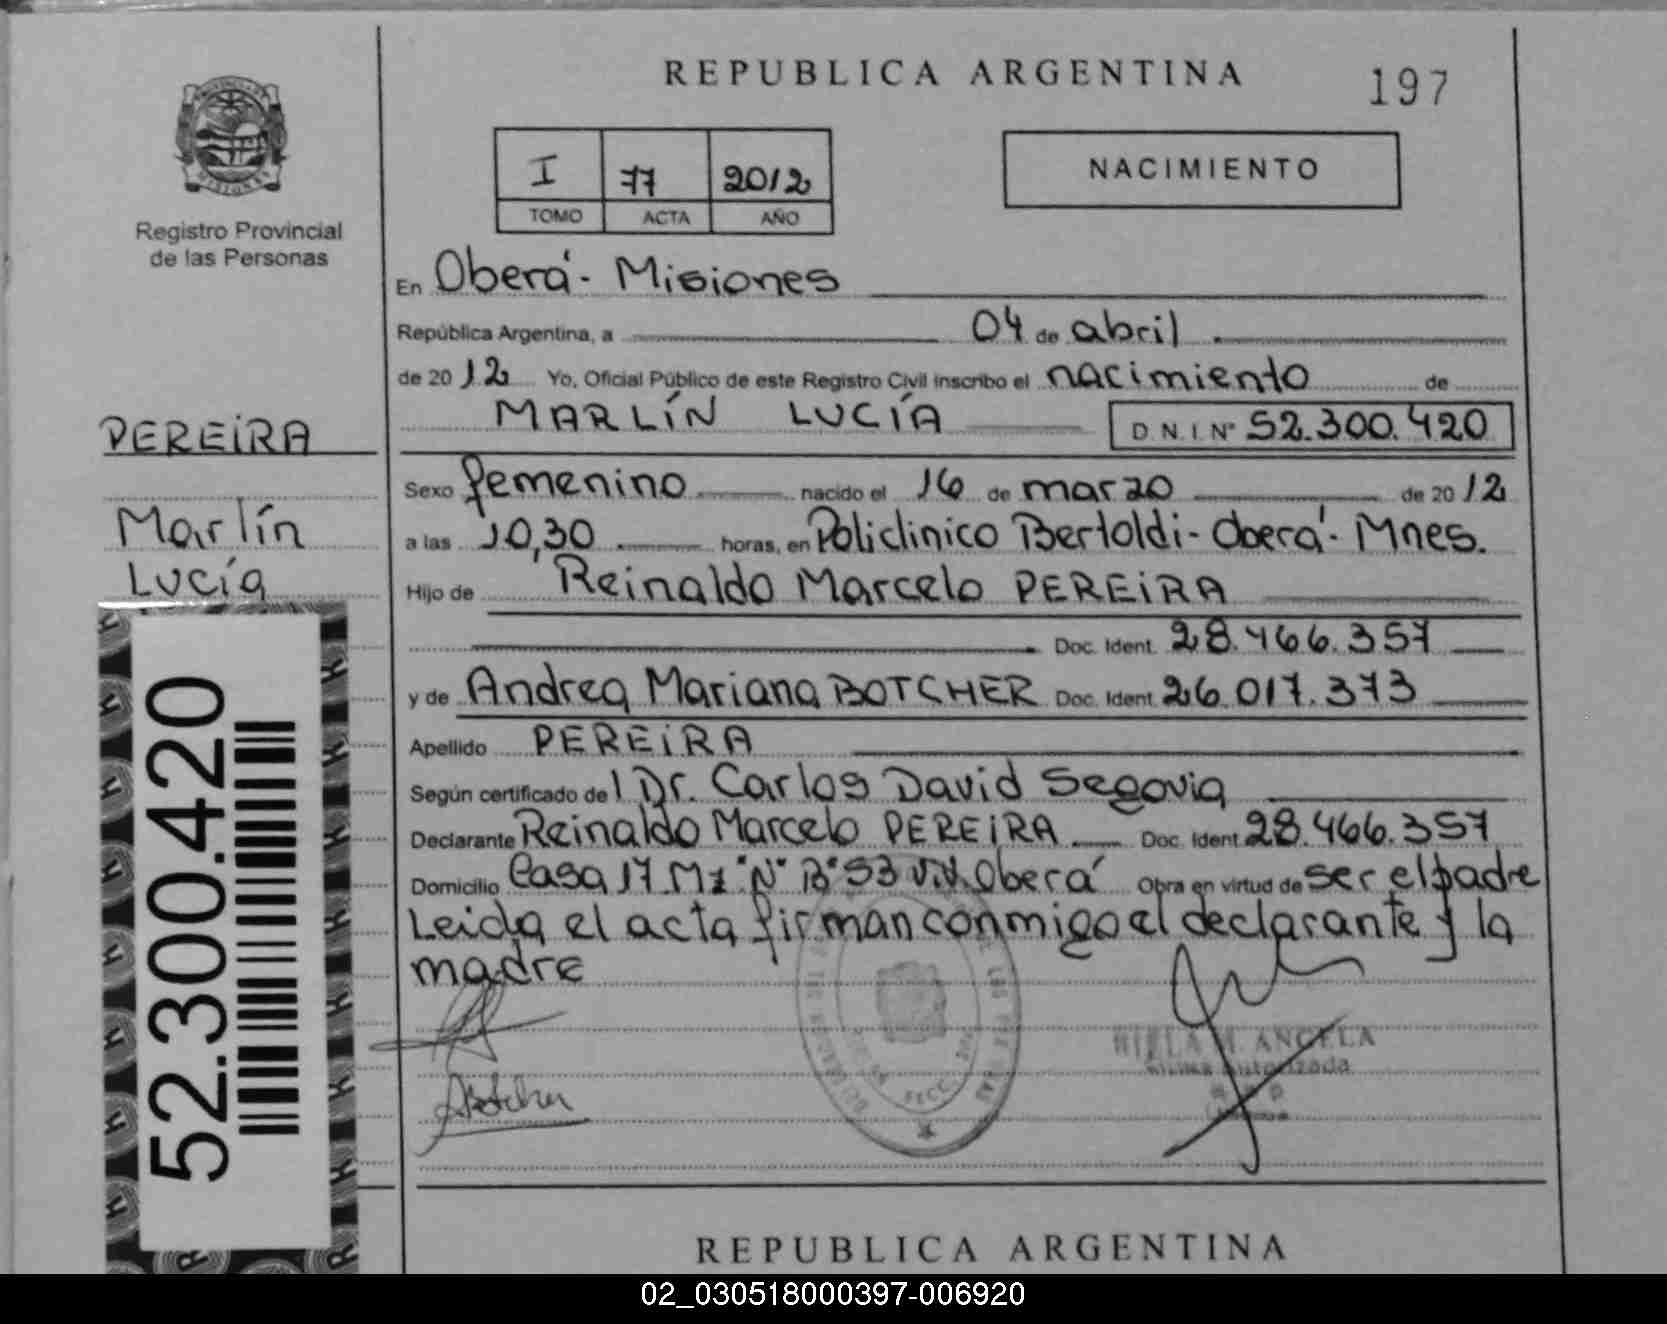 REPUBLICA ARGENTINA
197
I 77 2012
TOMO ACTA AÑO
NACIMIENTO
MISIONES
Registro Provincial
de las Personas
En Oberá - Misiones
República Argentina, a 04 de abril
de 2012 Yo, Oficial Público de este Registro Civil inscribo el nacimiento de
MARLÍN LUCÍA D.N.I. Nº 52.300.420
PEREIRA
Marlín
Lucía
Sexo femenino nacido el 16 de marzo de 2012
a las 10,30 horas, en Policlinico Bertoldi - Oberá - Mnes.
Hijo de Reinaldo Marcelo PEREIRA
Doc. Ident. 28.466.357
y de Andrea Mariana BOTCHER Doc. Ident. 26.017.373
Apellido PEREIRA
Según certificado del Dr. Carlos David Segovia
Declarante Reinaldo Marcelo PEREIRA Doc. Ident. 28.466.357
Domicilio Casa 17 Mz "N" Bº 53 Viv. Oberá Obra en virtud de ser el padre
Leida el acta firman conmigo el declarante y la
madre
52.300.420
M. ANGELA
Autorizada
REPUBLICA ARGENTINA
02_030518000397-006920